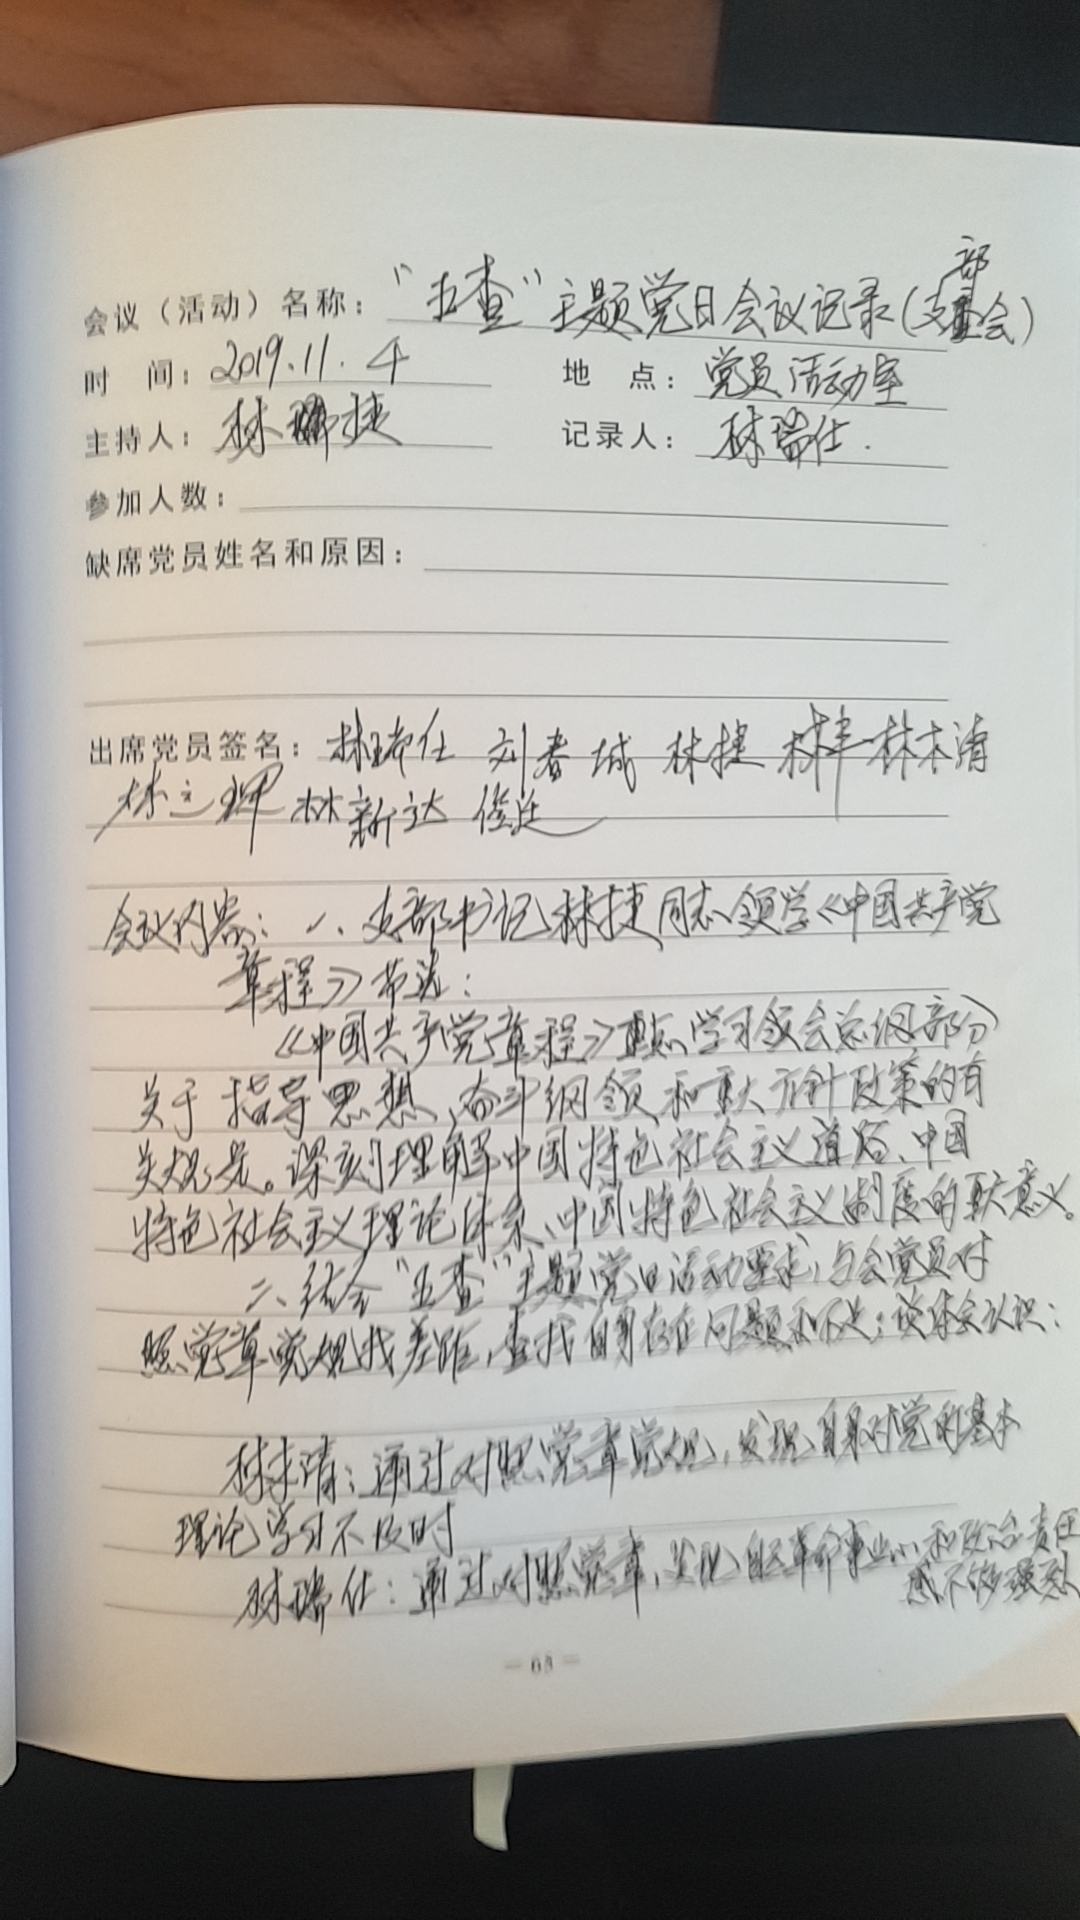 会议（活动）名称："五查"主题党日会议记录(支部会)
时 间：2019.11.4 地 点：党员活动室
主持人：林捷 记录人：林瑞仕.
参加人数：
缺席党员姓名和原因：
出席党员签名：林瑞仕 刘春城 林捷 林本清
林新达
会议内容：一、支部书记林捷同志领学《中国共产党
章程》节选：
《中国共产党章程》重点学习领会总纲部分
关于指导思想、奋斗纲领和重大方针政策的有
关规定。深刻理解中国特色社会主义道路、中国
特色社会主义理论体系、中国特色社会主义制度的重大意义。
二、结合"五查"主题党日活动要求，与会党员对
照党章党规找差距，查找自身存在问题和不足；谈体会认识：
林本清：通过对照党章党规，发现自身对党的基本
理论学习不及时
林瑞仕：通过对照党章，发现自己革命事业心和政治责任
感不够强烈
— 63 —